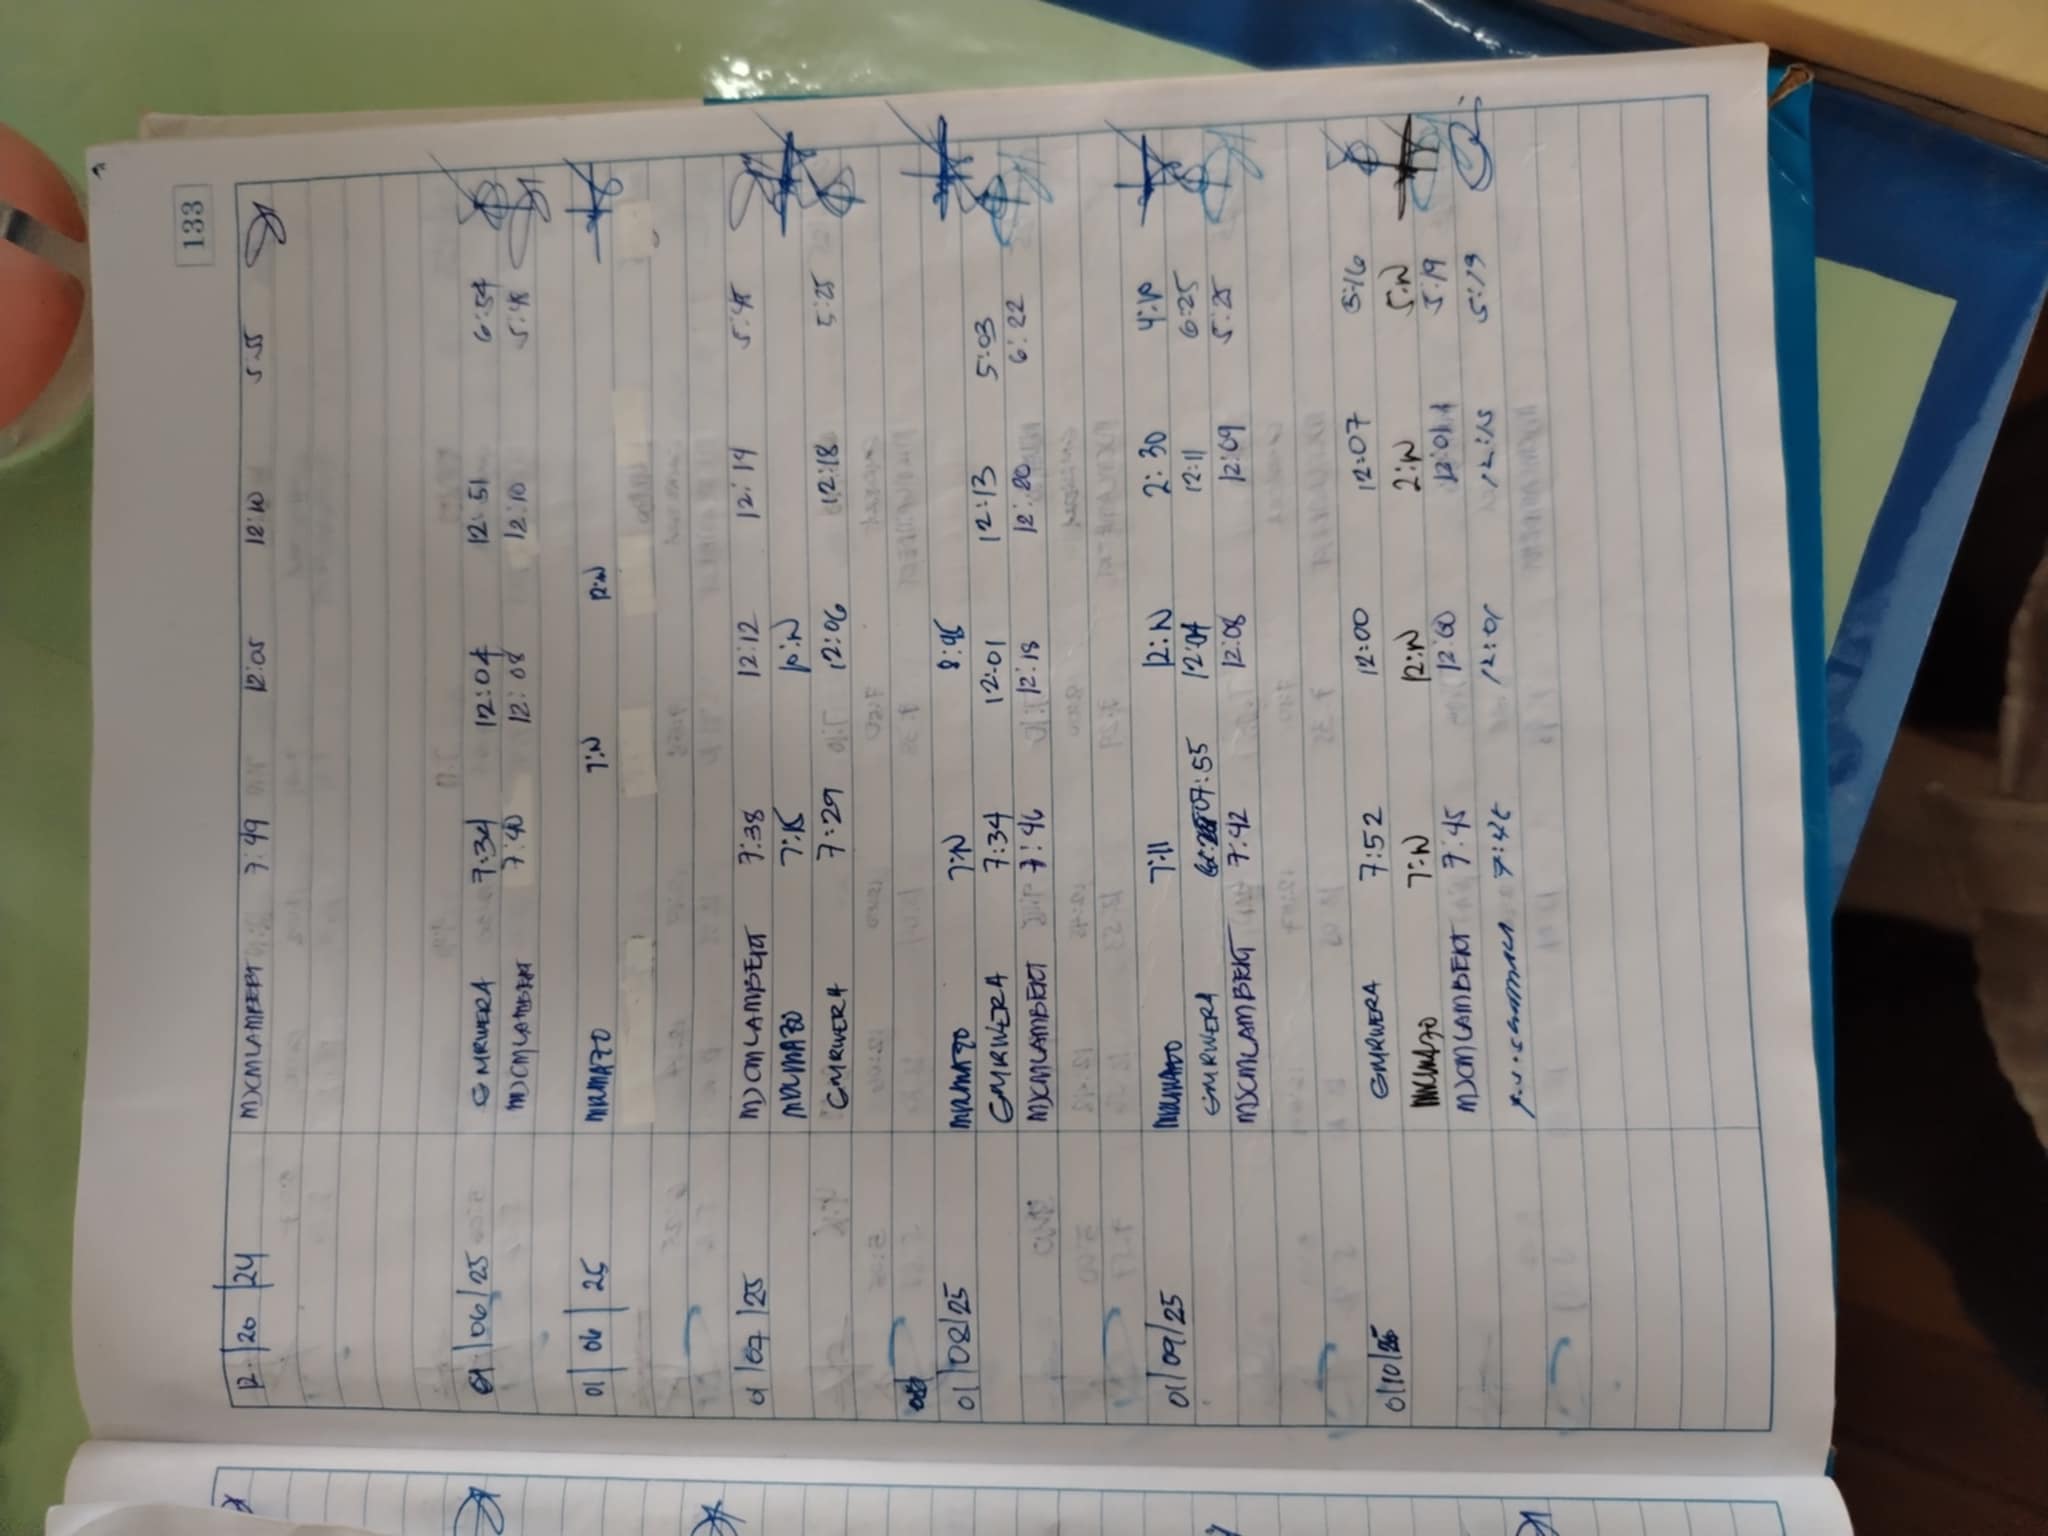 133
12/26/24 MJCMLAMBERT 7:49 12:05 12:10 5:55
01/06/25 GMRWERA 7:34 12:04 12:51 6:54
MJCMLAMBERT 7:40 12:08 12:10 5:45
01/06/25 7:N 12:N
01/07/25 MJCMLAMBERT 7:38 12:12 12:14 5:45
7:15 10:N
GMRWERA 7:29 12:06 12:18 5:25
01/08/25 7:N 8:45
GMRWERA 7:34 12:01 12:13 5:03
MJCMLAMBERT 7:46 12:18 12:20 6:22
01/09/25 7:11 12:N 2:30 4:10
GMRWERA 07:55 12:04 12:11 6:25
MJCMLAMBERT 7:42 12:08 12:09 5:25
01/10/25 GMRWERA 7:52 12:00 12:07 5:16
7:N 12:N 2:N 5:N
MJCMLAMBERT 7:45 12:00 12:01 5:19
7:45 12:01 12:15 5:19